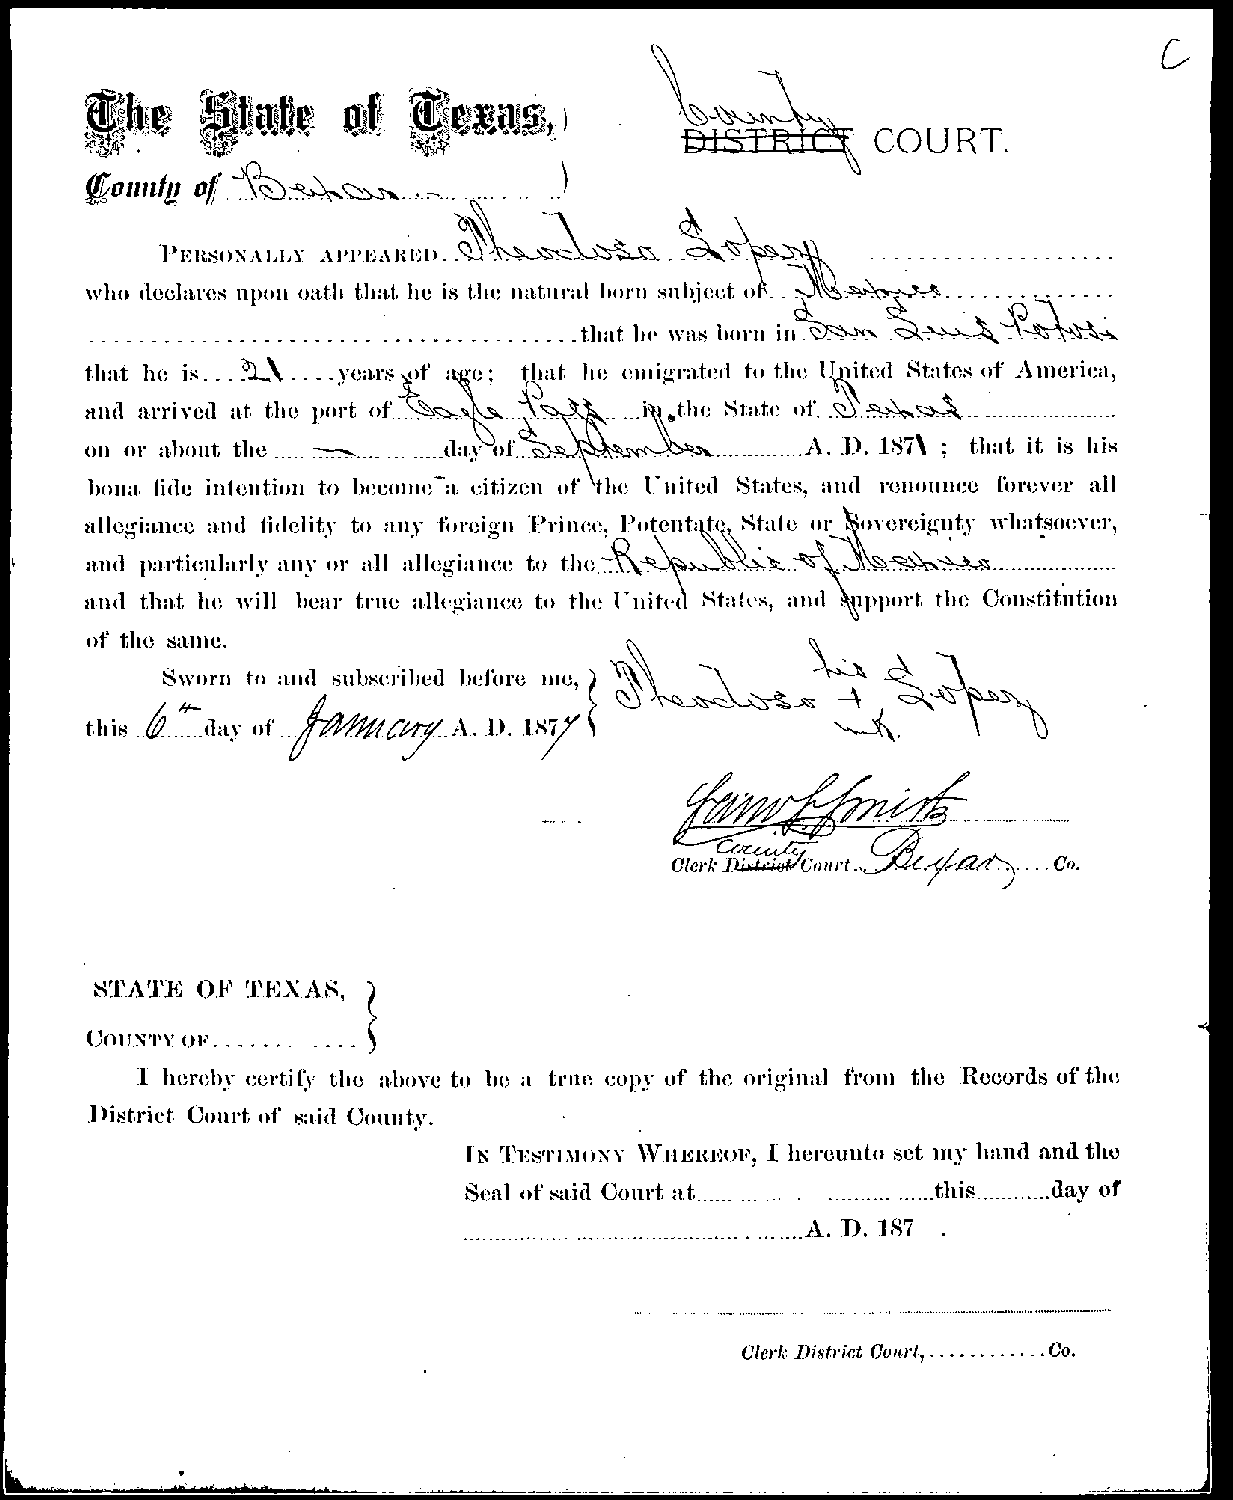 C
The State of Texas,
County
DISTRICT COURT.
County of Bexar
PERSONALLY APPEARED Theodoso Lopez
who declares upon oath that he is the natural born subject of Mexico
that he was born in San Luis Potosi
that he is 21 years of age; that he emigrated to the United States of America,
and arrived at the port of Eagle Pass in the State of Texas
on or about the — day of September A. D. 1871; that it is his
bona fide intention to become a citizen of the United States, and renounce forever all
allegiance and fidelity to any foreign Prince, Potentate, State or Sovereignty whatsoever,
and particularly any or all allegiance to the Republic of Mexico
and that he will bear true allegiance to the United States, and support the Constitution
of the same.
Sworn to and subscribed before me,
this 6th day of January A. D. 1877
his
Theodoso + Lopez
mk.
Sam S Smith
County
Clerk District Court Bexar Co.
STATE OF TEXAS,
COUNTY OF
I hereby certify the above to be a true copy of the original from the Records of the
District Court of said County.
IN TESTIMONY WHEREOF, I hereunto set my hand and the
Seal of said Court at this day of
A. D. 187 .
Clerk District Court, Co.